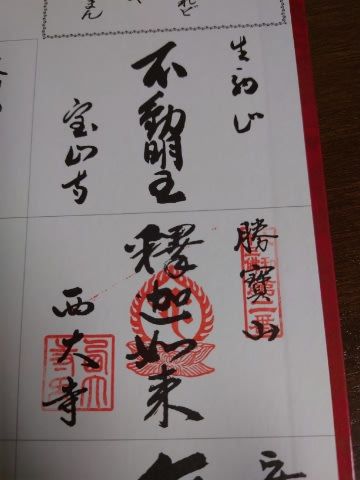 生駒山
不動明王
宝山寺
勝寶山
釋迦如来
西大寺